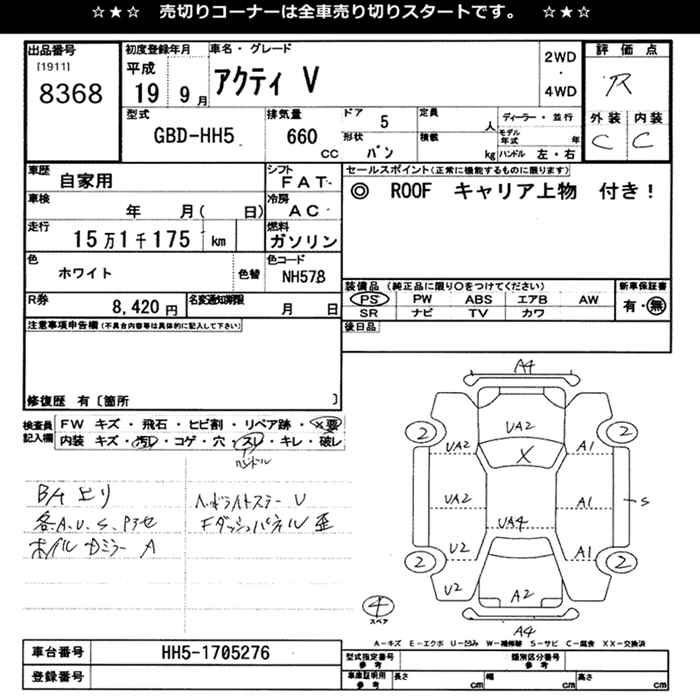 ☆★☆　売切りコーナーは全車売り切りスタートです。　☆★☆
出品番号
[1911]
8368
初度登録年月
平成
19 9月
車名・グレード
アクティ V
2WD
・
4WD
評価点
R
外装 内装
C C
型式
GBD-HH5
排気量
660
CC
ドア 5
形状
バン
定員
人
積載
kg
ディーラー・並行
モデル年式 年
ハンドル 左・右
車歴
自家用
シフト
FAT
車検
年 月( 日)
冷房
AC
走行
15万1千175 km
燃料
ガソリン
色
ホワイト
色替
色コード
NH578
R券
8,420円
名変通知期限
月 日
セールスポイント(正常に機能するものに限ります)
◎ ROOF キャリア上物 付き!
装備品 (純正品に限り○をつけてください)
PS PW ABS エアB AW
SR ナビ TV カワ
新車保証書
有・無
後日品
注意事項申告欄(不具合内容等は具体的に記入して下さい)
修復歴 有〔箇所 〕
検査員
記入欄
FW キズ・飛石・ヒビ割・リペア跡・X要
内装 キズ・汚レ・コゲ・穴・スレ・キレ・破レ
ハンドル
各A.U.S.
A
ヘッドライトステー U
Fダッシュパネル 歪
A4
2 UA2 2
UA2 X A1
UA2 A1 S
UA4
U2 A1
2 2
U2 A2
A4
4
スペア
A-キズ E-エクボ U-凹み W-補修跡 S-サビ C-腐食 XX-交換済
車台番号
HH5-1705276
登録番号
型式指定番号
参考
類別区分番号
参考
車庫証明用
参考
長さ cm
幅 cm
高さ cm